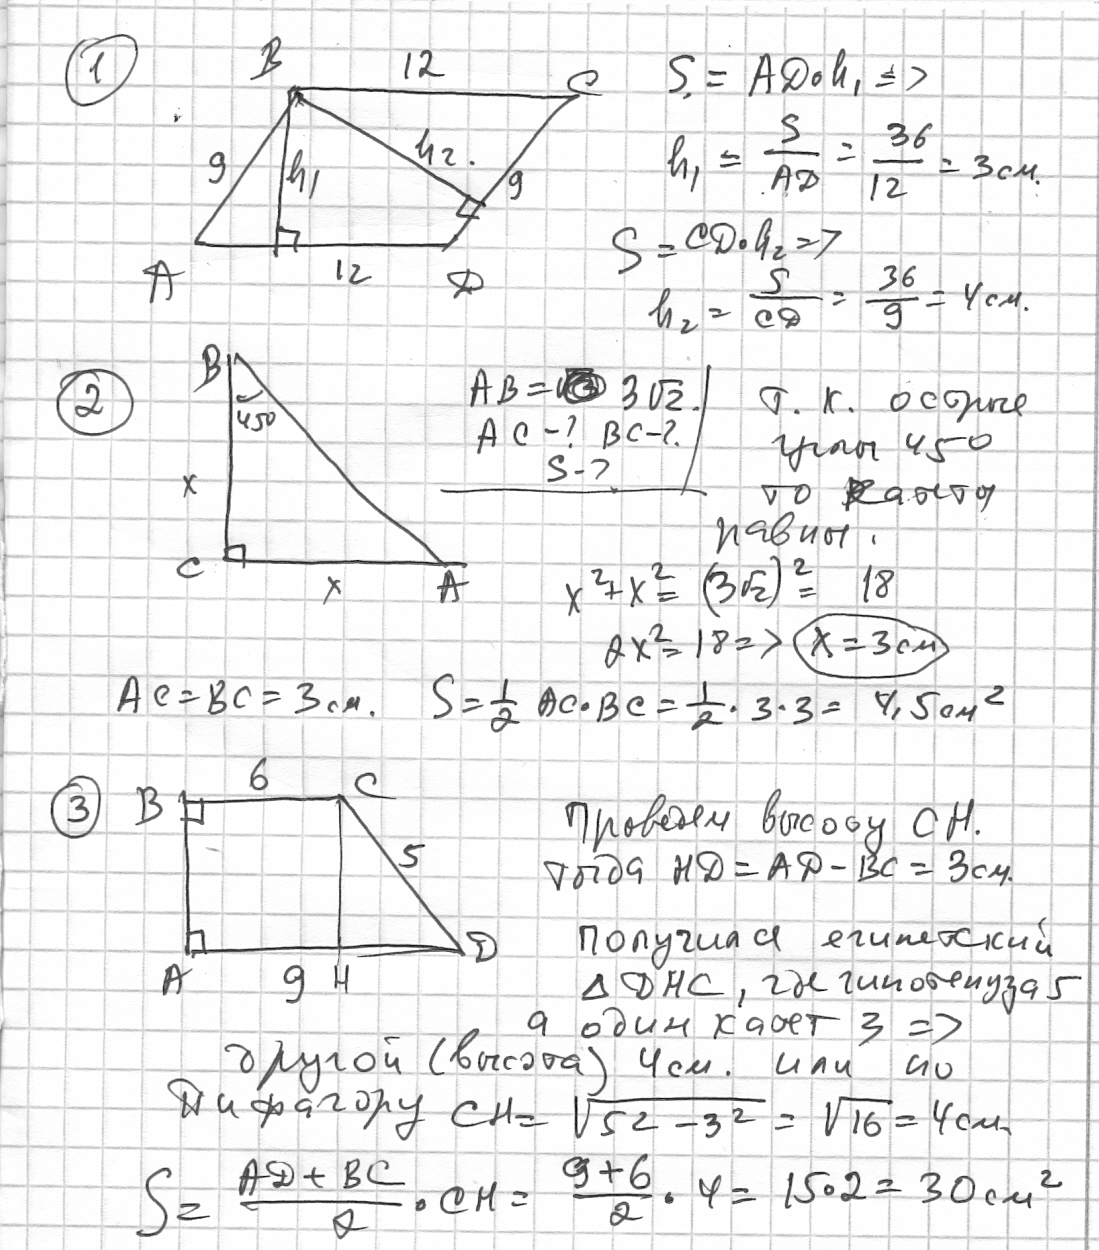 1
B 12 C
9 h₁ h₂. 9
A 12 D
S = AD·h₁ =>
h₁ = S/AD = 36/12 = 3 см.
S = CD·h₂ =>
h₂ = S/CD = 36/9 = 4 см.
2
B
45°
x
C x A
AB = 3√2.
AC-? BC-?.
S-?
т. к. острые
углы 45°
то катеты
равны.
x² + x² = (3√2)² = 18
2x² = 18 => x = 3 см
AC = BC = 3 см. S = 1/2 AC·BC = 1/2 · 3 · 3 = 4,5 см²
3
B 6 C
5
A 9 H D
Проведем высоту CH.
тогда HD = AD - BC = 3 см.
получился египетский
Δ DHC, где гипотенуза 5
а один катет 3 =>
другой (высота) 4 см. или по
Пифагору CH = √5² - 3² = √16 = 4 см.
S = AD + BC/2 · CH = 9+6/2 · 4 = 15·2 = 30 см²